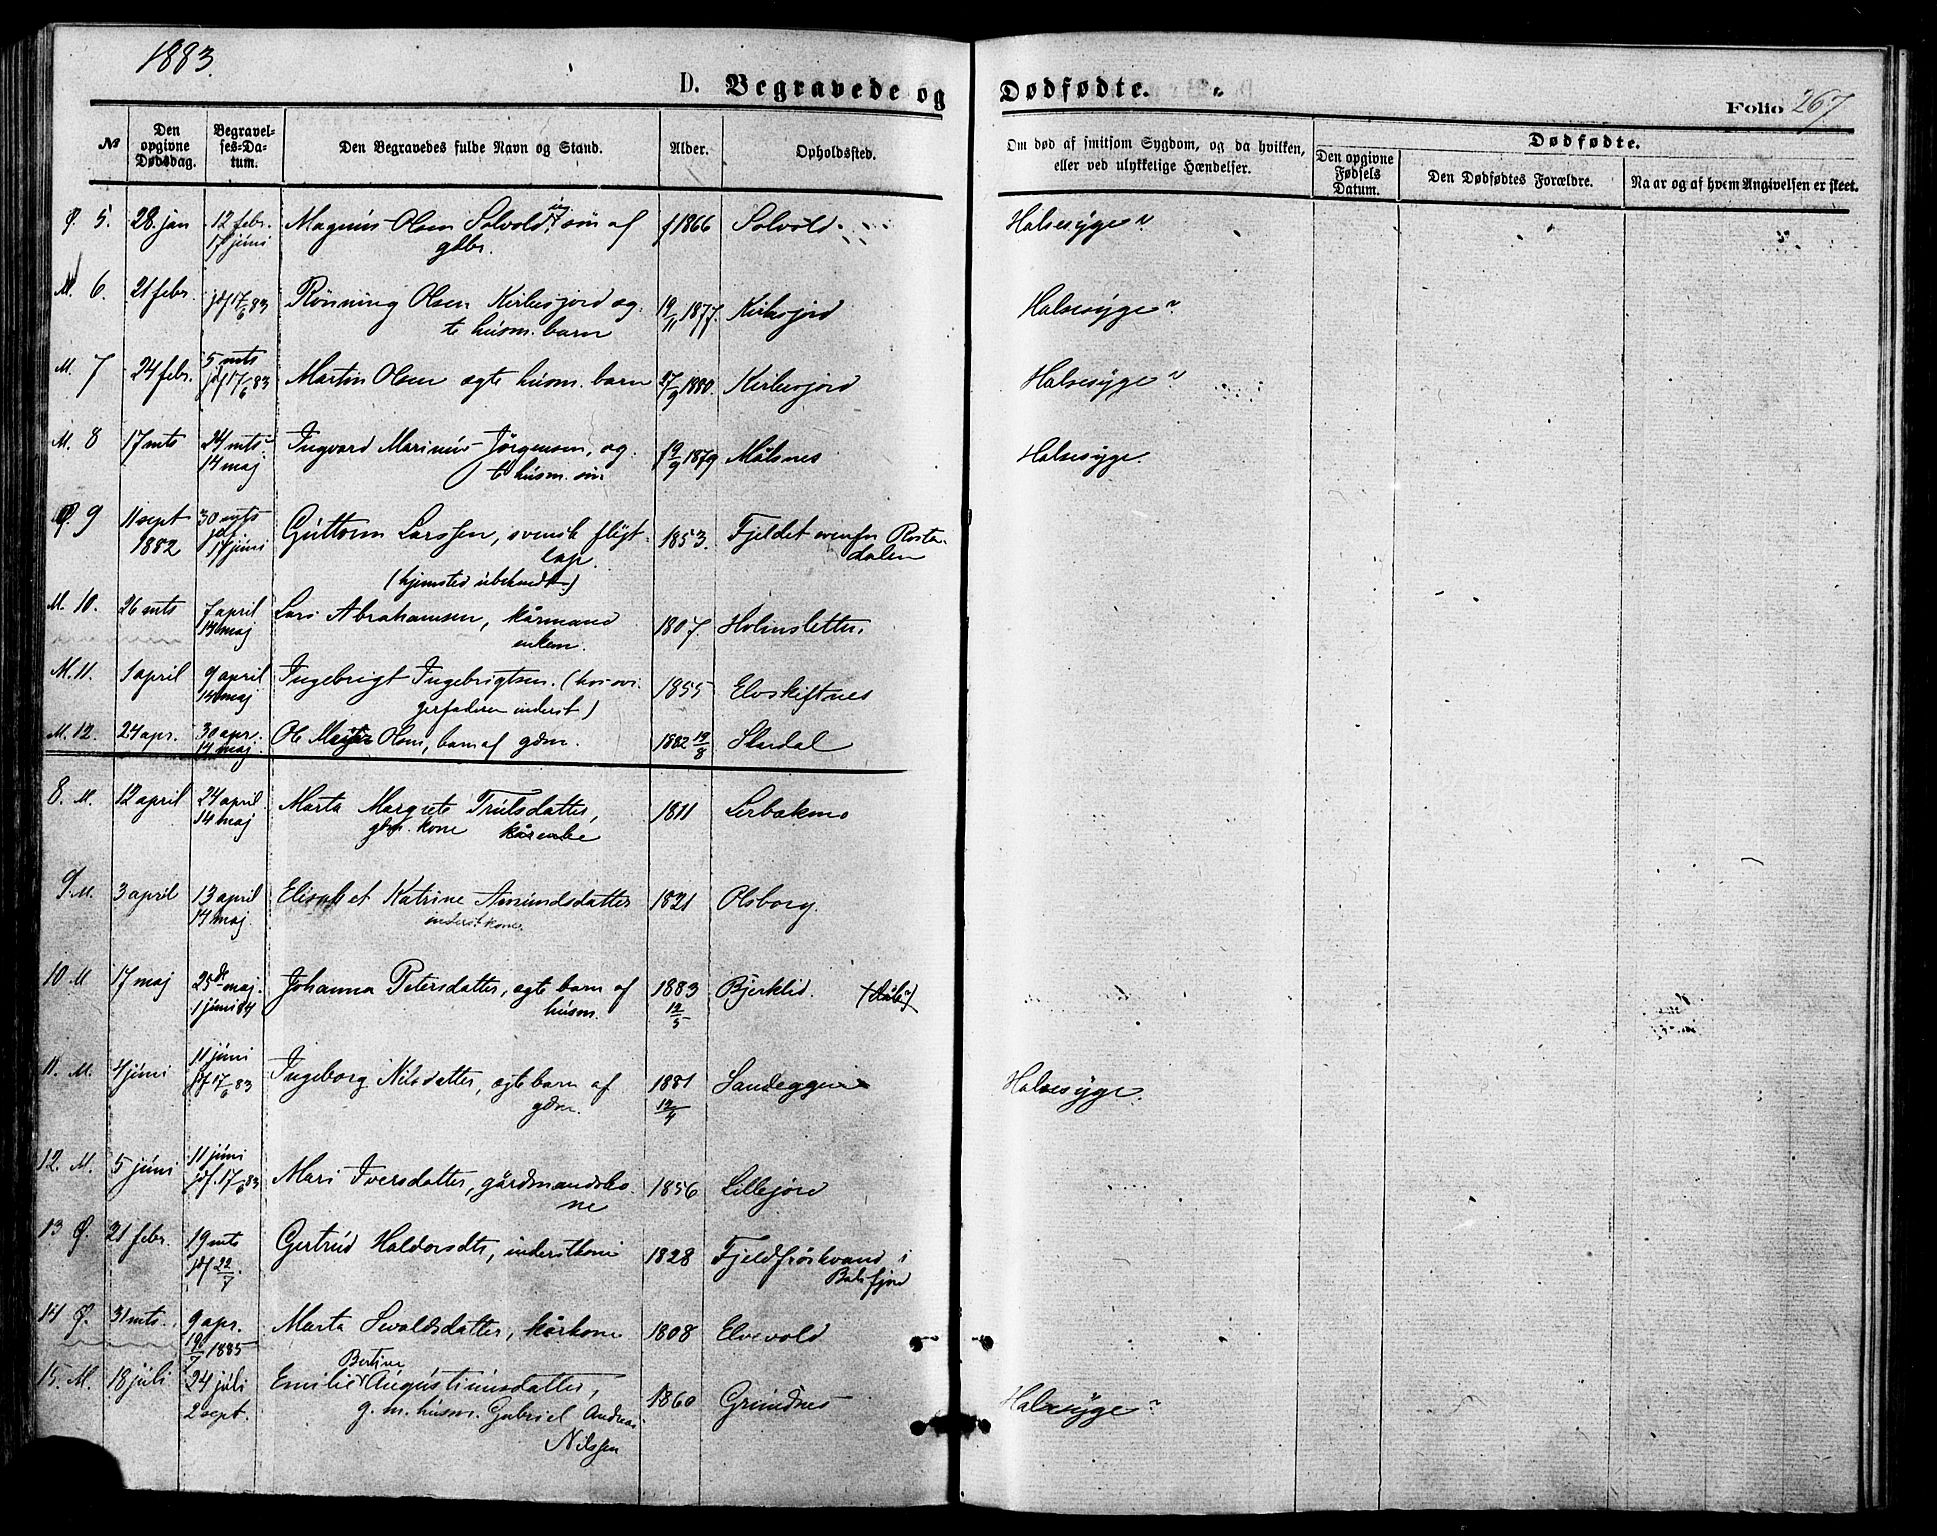 1883.
D. Begravede og Dødfødte.
Folio 267
№
Den opgivne Dødsdag.
Begravelses-Datum.
Den Begravedes fulde Navn og Stand.
Alder.
Opholdssted.
Om død af smitsom Sygdom, og da hvilken, eller ved ulykkelige Hændelser.
Dødfødte.
Den opgivne Fødsels Datum.
Den Dødfødtes Forældre.
Naar og af hvem Angivelsen er skeet.
Ø. 5. 28 jan 12 febr. Magnus Olsen Solvold, søn af f 1866 Solvold. Halsesyge
17 juni gbr.
M. 6. 21 febr. jdf 17/6 83 Rönning Olsen Kirkesjord æg- 19/11 1877. Kirkesjord Halsesyge
te husm. barn
M. 7 24 febr. 5 mts Martin Olsen ægte husm. barn 27/9 1880. Kirkesjord Halsesyge
jdf 17/6 83
M. 8 17 mts 24 mts Ingvard Marinus Jörgensen, æg- 1879 Målsnes Halsesyge.
14 maj te husm. søn
9 11 sept 30 mts Guttorm Larssen, svensk flyt- 1853. Fjeldet ovenfor Rosta-
1882 jdf lap. dalen
17 juni (hjemsted ubekendt.)
M. 10. 26 mts 7 april Lars Abrahamsen, kårmand 1807 Holmslette.
14 maj enkem.
M. 11. 1 april 9 april Ingebrigt Ingebrigtsen. (hos svi- 1855 Elvskiftnes
14 maj gerfaderen inderst)
M. 12. 24 apr. 30 apr. Ole Olsen, barn af gdm. 1882 19/8 Stordal
14 maj
8. M. 12 april 24 april Marta Margrete Trulsdatter, 1811 Lerbakmo
14 maj gbm. kone kårenke
9. M. 3 april 13 april Elisabet Katrine Amundsdatter 1821 Olsborg.
14 maj inderstkone
10. M 17 maj 25de maj. Johanna Petersdatter, ægte barn af 1883 Bjerklid.
1 juni 84 husm. 12/5
11. M. 4 juni 11 juni Ingeborg Nilsdatter, ægte barn af 1881 Sandeggen Halsesyge.
jdf 17/6 83 gdm. 12/4
12. M. 5 juni 11 juni Mari Iversdatter, gårdmandsko- 1856 Lillejord
jdf. 17/6 83 ne
13 Ø. 21 febr. 19 mts Gertrud Haldorsdtr, inderstkone 1828 Fjeldfröskvand i
jdf 22/7 Balsfjord
14 Ø. 31 mts. 9 apr. Marta Sivaldsdatter, kårkone 1808 Elvevold
19/7 1885
Bertine
15. M. 18 juli 24 juli Emilie Augustinusdatter, 1860 Grundnes Halsesyge
2 sept. g. m. husm. Gabriel Andreas
Nilssen